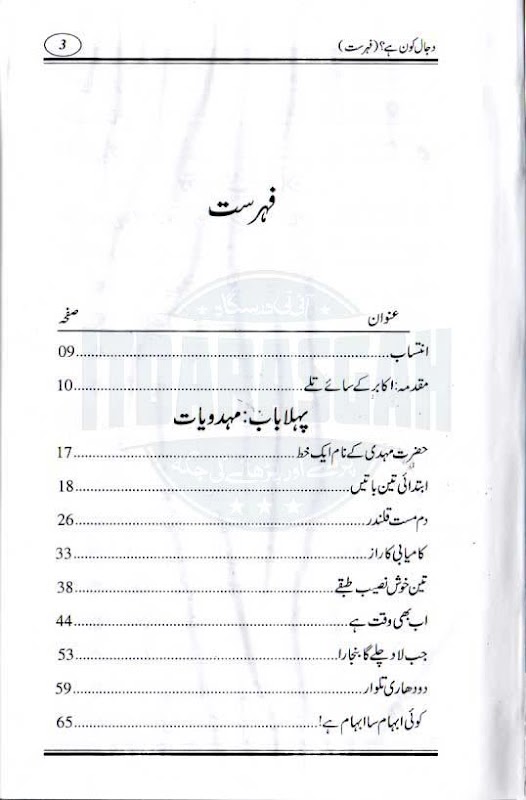 دجال کون ہے؟ (فہرست) 3
فہرست
عنوان صفحہ
انتساب ........ 09
مقدمہ: اکابر کے سائے تلے ........ 10
پہلا باب: مہدویات
حضرت مہدی کے نام ایک خط ........ 17
ابتدائی تین باتیں ........ 18
دم مست قلندر ........ 26
کامیابی کا راز ........ 33
تین خوش نصیب طبقے ........ 38
اب بھی وقت ہے ........ 44
جب لاد چلے گا بنجارا ........ 53
دودھاری تلوار ........ 59
کوئی ابہام سا ابہام ہے! ........ 65
ITDARASGAH